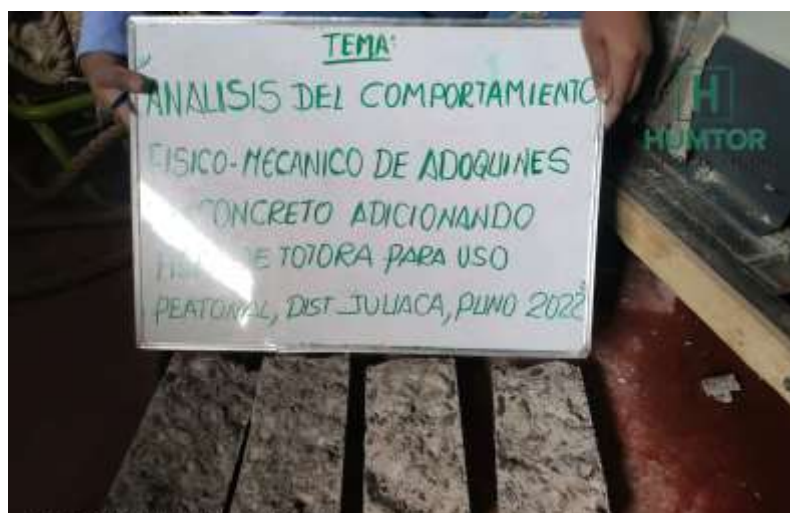 TEMA:
ANALISIS DEL COMPORTAMIENTO
FISICO-MECANICO DE ADOQUINES
CONCRETO ADICIONANDO
DE TOTORA PARA USO
PEATONAL, DIST. JULIACA, PUNO 2022
H
HUMTOR